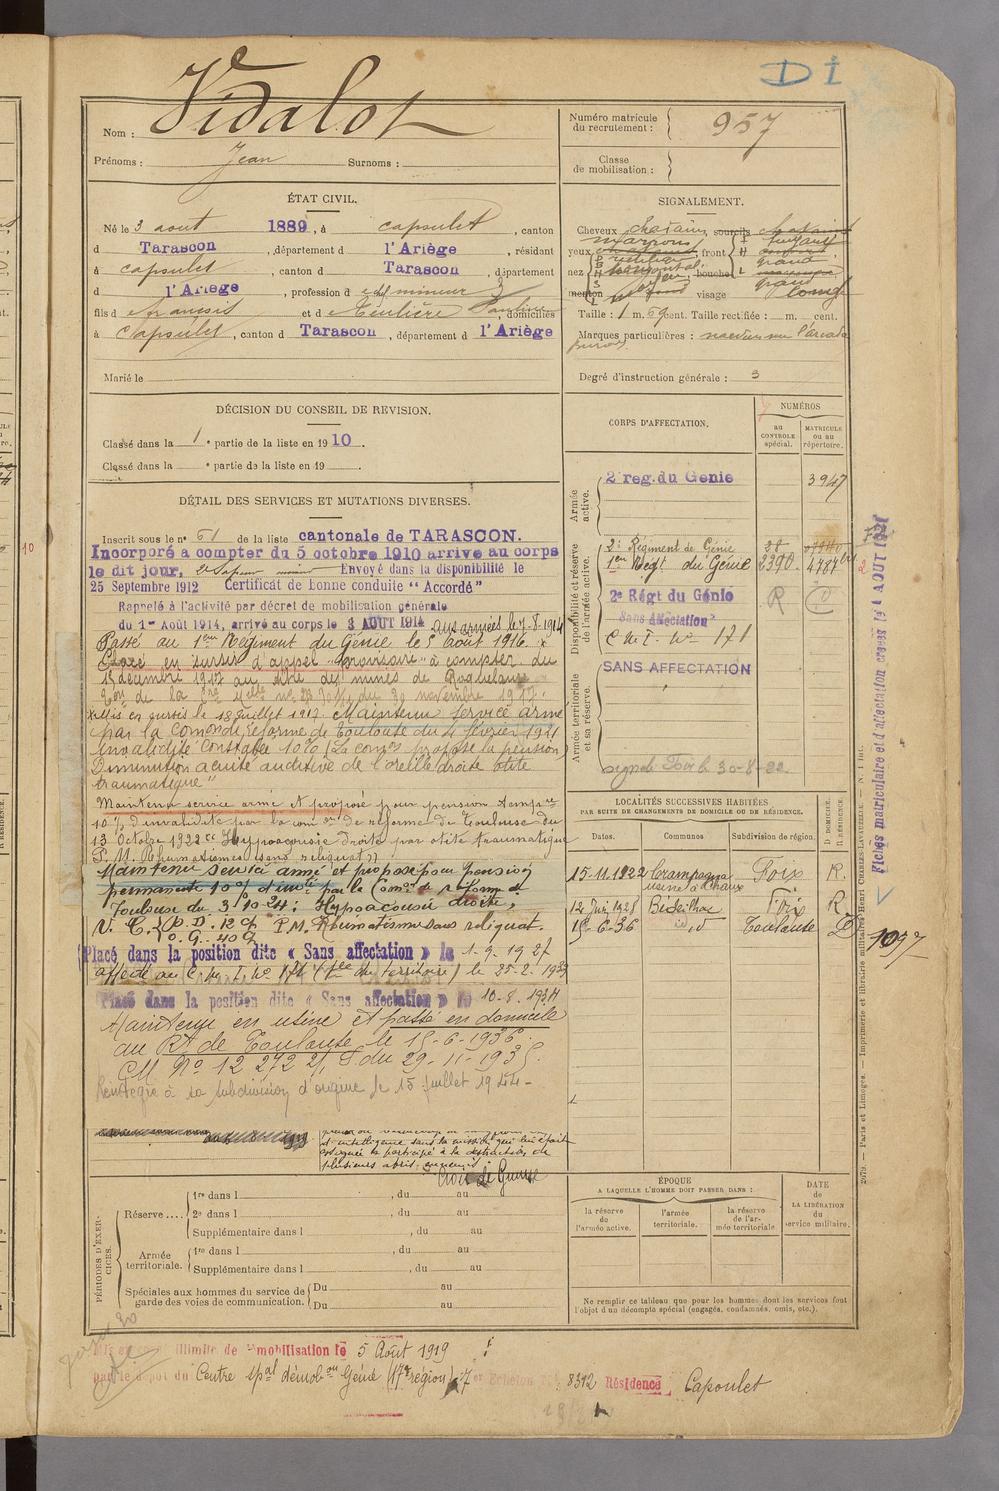 D I
Nom : Vidalot
Prénoms : Jean Surnoms :
Numéro matricule du recrutement : 957
Classe de mobilisation :
ÉTAT CIVIL.
Né le 3 aout 1889, à capsulet, canton
d Tarascon, département d l'Ariège, résidant
à capsulet, canton d Tarascon, département
d l'Ariège, profession d mineur
fils d francois et d Teulière, domiciliés
à Capsulet, canton d Tarascon, département d l'Ariège
Marié le
SIGNALEMENT.
Cheveux chatain, sourcils chatains
yeux marrons, front fuyant
nez horizontal, bouche grand
menton visage grand
Taille : 1 m. 69 cent. Taille rectifiée : m. cent.
Marques particulières : naevus sur l'arcade
Degré d'instruction générale : 3
DÉCISION DU CONSEIL DE REVISION.
Classé dans la 1e partie de la liste en 1910.
Classé dans la e partie de la liste en 19
DÉTAIL DES SERVICES ET MUTATIONS DIVERSES.
Inscrit sous le n° 51 de la liste cantonale de TARASCON.
Incorporé a compter du 5 octobre 1910 arrive au corps
le dit jour, Envoyé dans la disponibilité le
25 Septembre 1912 Certificat de bonne conduite "Accordé"
Rappelé à l'activité par décret de mobilisation générale
du 1er Août 1914, arrivé au corps le 3 AOUT 1914 aux armées le 7-8-1914
Passé au 1er Régiment du Génie le 5 Août 1916.
Placé en sursis d'appel "provisoire" à compter du
15 décembre 1917 au titre des mines de Roquelaure
du 30 novembre 1917.
Mis en sursis le 18 Juillet 1917. Maintenu service armé
par la Comon de Réforme de Toulouse du 4 février 1921
Invalidité Constatée 10% (La comon propose la pension)
Diminution acuité auditive de l'oreille droite otite
traumatique"
Maintenu service armé et proposé pour pension tempre
10% d'invalidité par la com on de réforme de Toulouse du
13 Octobre 1922 Hypoacousie droite par otite traumatique
P. M. Rhumatismes sans reliquat
Maintenu service armé et proposé pour pension
permanente 10% d'invté par la Comon de réforme de
Toulouse du 3 10 24 : Hypoacousie droite,
V. C. O. D. 12 cg P.M. Rhumatisme sans reliquat.
O. G. 40 g
Placé dans la position dite « Sans affectation » le 1-9-1927
affecté au C. M. I. N° 171 le 25-2-1929
Placé dans la position dite « Sans affectation » le 10-8-1934
Maintenu en usine et passé en domicile
au Rt de Toulouse le 15-6-1936.
CM N° 12 272 du 29-11-1935.
Réintégré à sa subdivision d'origine le 15 juillet 1944-
et intelligence dans la mission qui lui était
assignée a participé à la destruction de
plusieurs abris ennemis.
Croix de Guerre
CORPS D'AFFECTATION.
NUMÉROS
au CONTROLE spécial.
MATRICULE ou au répertoire.
Armée active.
2e reg. du Génie 3947
Disponibilité et réserve de l'armée active.
2e Régiment de Génie
1er Régt du Génie 2390 4787
2e Régt du Génie R
Sans affectation
C. M. I. N° 171
Armée territoriale et sa réserve.
SANS AFFECTATION
signalé Foix le 30-8-22
LOCALITÉS SUCCESSIVES HABITÉES
PAR SUITE DE CHANGEMENTS DE DOMICILE OU DE RÉSIDENCE.
Dates. Communes Subdivision de région. D. DOMICILE. R. RÉSIDENCE.
15-11-1922 Crampagna Foix R.
12 Juin 1928 Bédeilhac Foix R
15-6-36 id Toulouse D
1097
Fiches matriculaire et d'affectation créées le AOUT 1921
2079. — Paris et Limoges. — Imprimerie et librairie militaires Henri CHARLES-LAVAUZELLE.
PÉRIODES D'EXERCICES.
Réserve....
1re dans l , du au
2e dans l , du au
Supplémentaire dans l , du au
Armée territoriale.
1re dans l , du au
Supplémentaire dans l , du au
Spéciales aux hommes du service de garde des voies de communication.
Du au
Du au
ÉPOQUE
A LAQUELLE L'HOMME DOIT PASSER DANS :
la réserve de l'armée active.
l'armée territoriale.
la réserve de l'armée territoriale
DATE de LA LIBÉRATION du service militaire.
Ne remplir ce tableau que pour les hommes dont les services font
l'objet d'un décompte spécial (engagés, condamnés, omis, etc.).
illimité de démobilisation le 5 Août 1919
par le dépôt du Centre spal démobon Génie (17e région) Echelon 8312 Résidence Capoulet